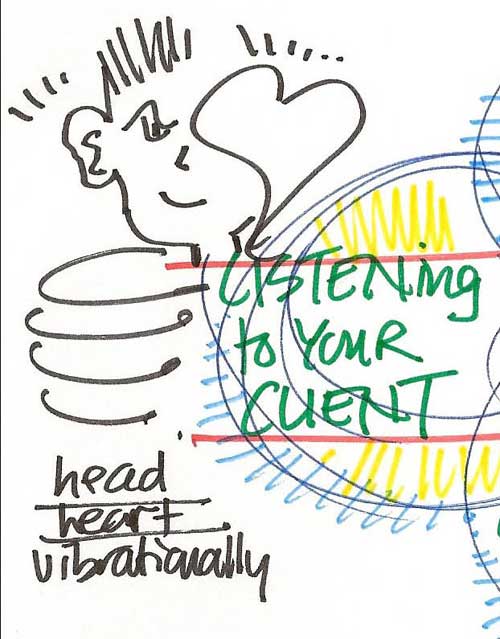 LISTENing
to YOUR
CLIENT
head
heart
vibrationally